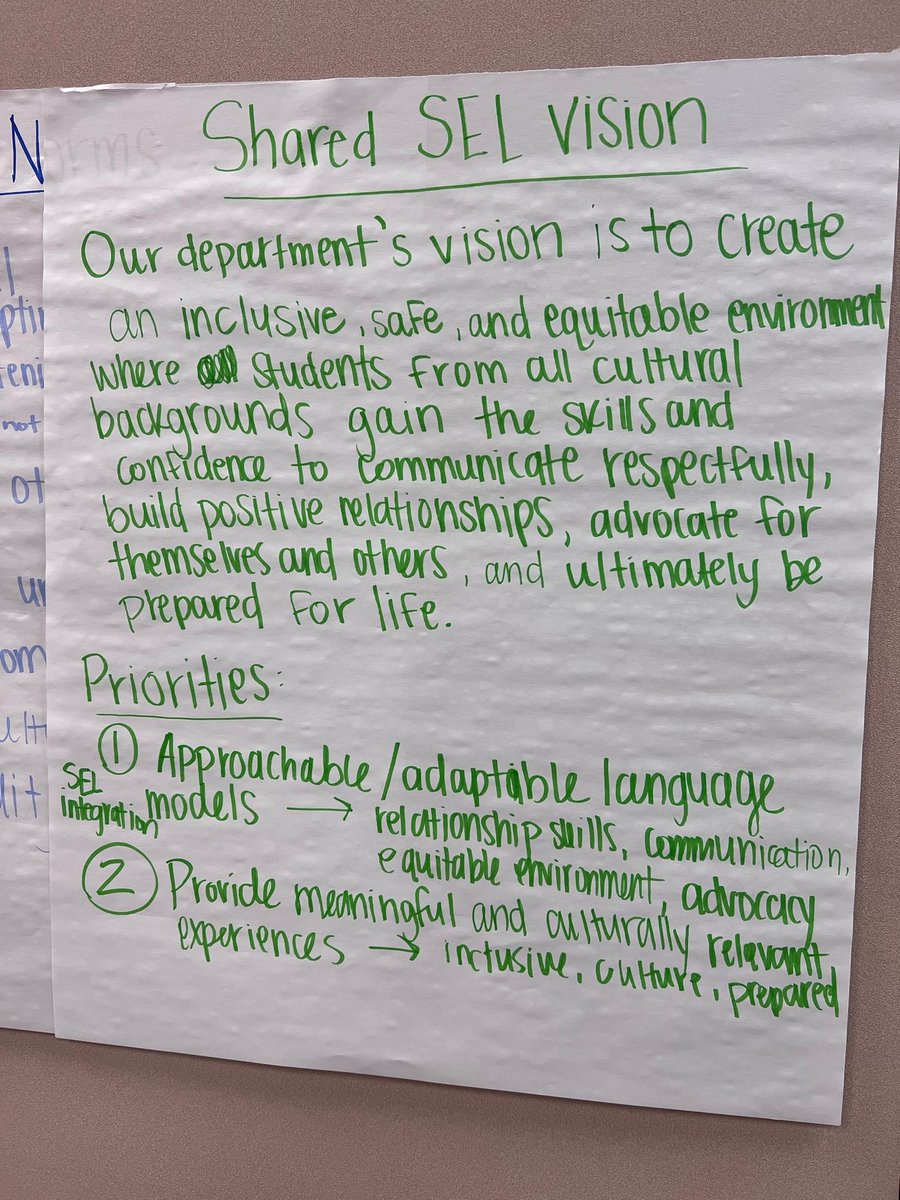 Shared SEL Vision
Our department's vision is to create
an inclusive, safe, and equitable environment
where students from all cultural
backgrounds gain the skills and
confidence to communicate respectfully,
build positive relationships, advocate for
themselves and others, and ultimately be
prepared for life.
Priorities:
① Approachable/adaptable language
SEL integration
models → relationship skills, communication,
equitable environment, advocacy
② Provide meaningful and culturally relevant
experiences → inclusive, culture, prepared